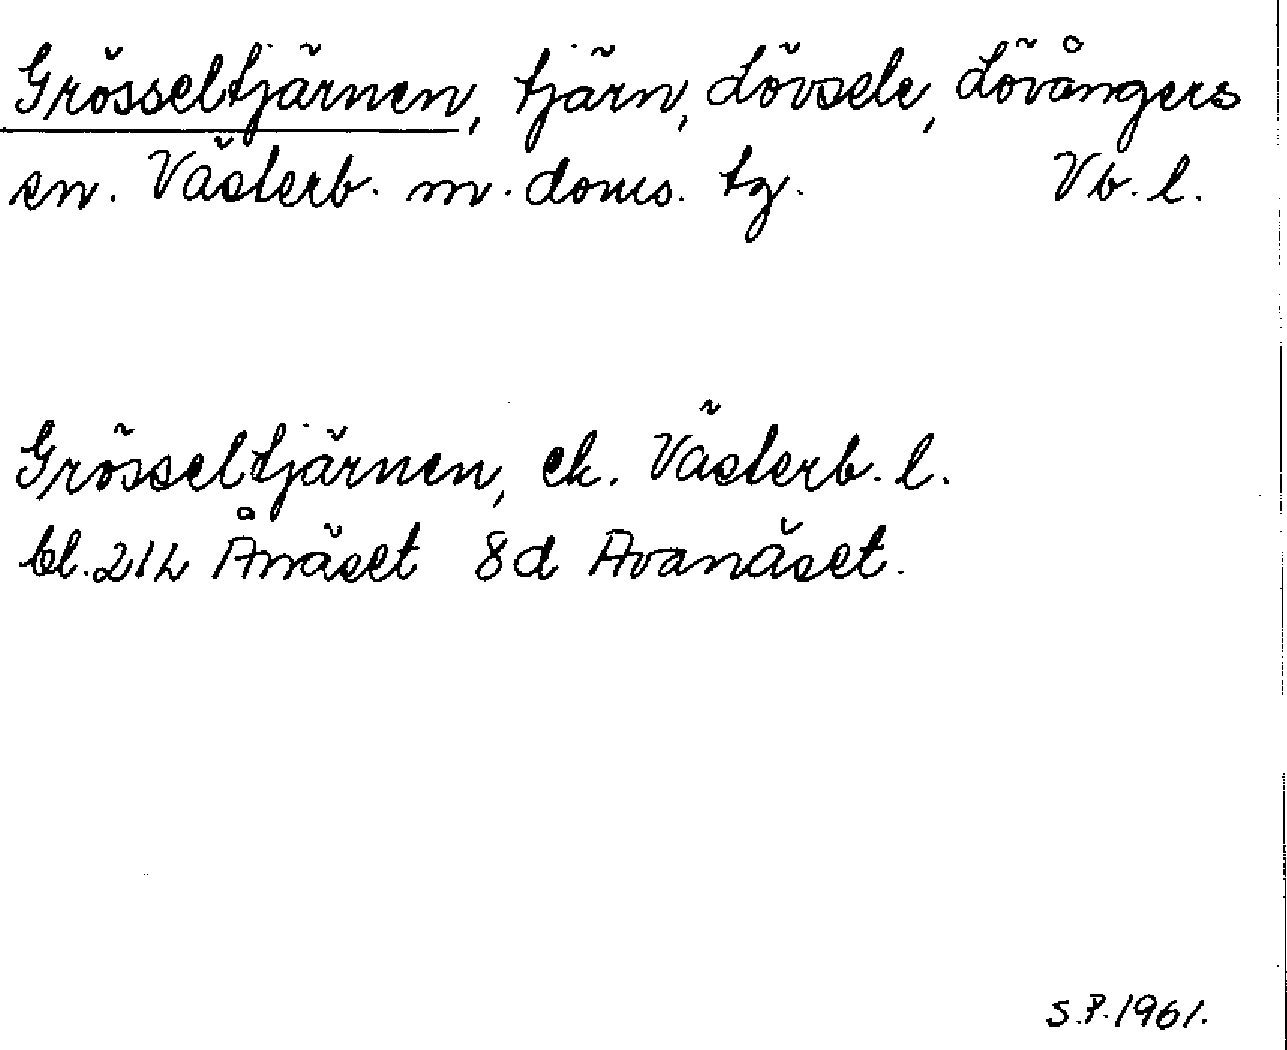 Grösseltjärnen, tjärn, Lövsele, Lövångers
sn. Västerb. m. doms. tg. Vb. l.
Grösseltjärnen, ek. Västerb. l.
bl. 21L Ånäset 8d Avanäset.
S.P. 1961.